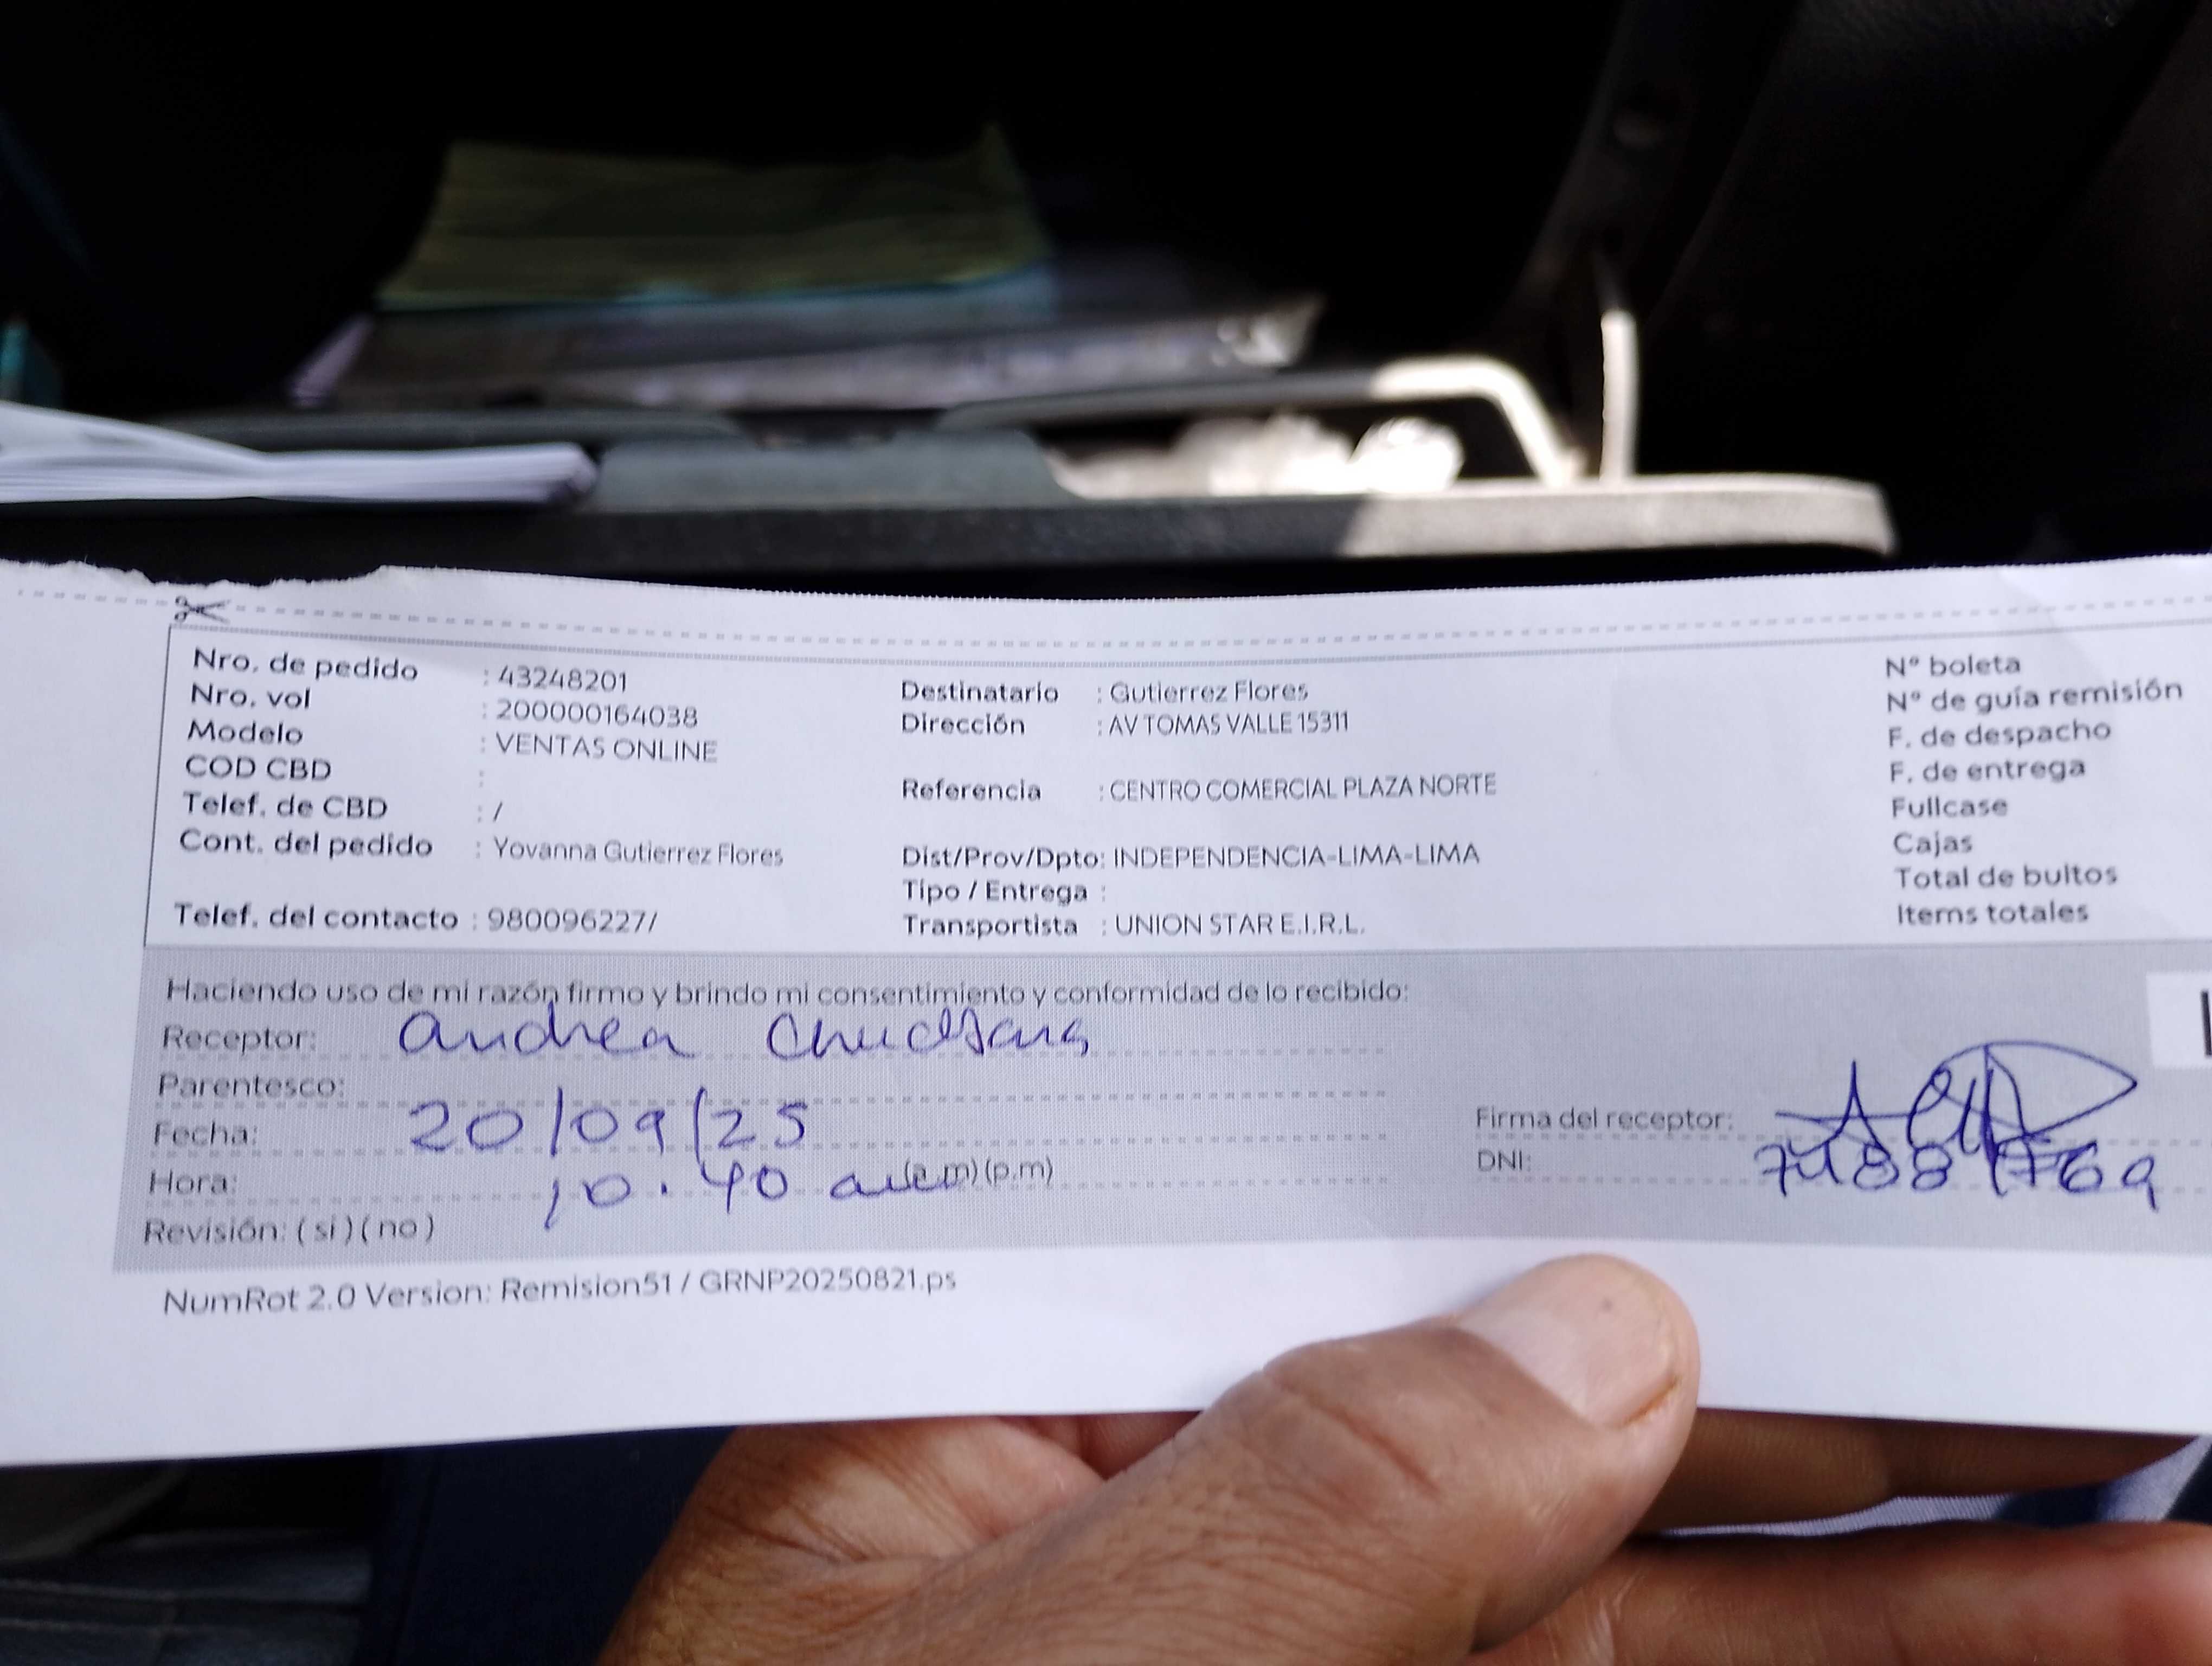 Nro. de pedido : 43248201
Nro. vol : 200000164038
Modelo : VENTAS ONLINE
COD CBD :
Telef. de CBD : /
Cont. del pedido : Yovanna Gutierrez Flores
Telef. del contacto : 980096227/
Destinatario : Gutierrez Flores
Dirección : AV TOMAS VALLE 15311
Referencia : CENTRO COMERCIAL PLAZA NORTE
Dist/Prov/Dpto: INDEPENDENCIA-LIMA-LIMA
Tipo / Entrega :
Transportista : UNION STAR E.I.R.L.
N° boleta
N° de guía remisión
F. de despacho
F. de entrega
Fullcase
Cajas
Total de bultos
Items totales
Haciendo uso de mi razón firmo y brindo mi consentimiento y conformidad de lo recibido:
Receptor: Andrea
Parentesco:
Fecha: 20/09/25
Hora: 10.40 am (a.m) (p.m)
Revisión: ( si ) ( no )
Firma del receptor:
DNI:
NumRot 2.0 Version: Remision51 / GRNP20250821.ps